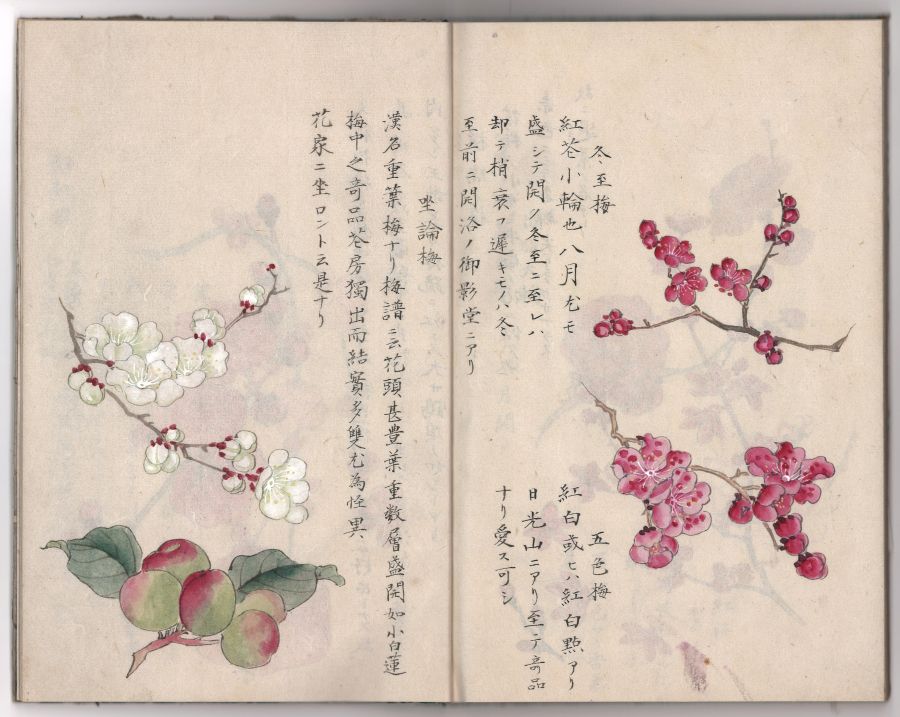 冬至梅
紅花小輪也八月尤モ
盛シテ開ノ冬至ニ至レハ
却テ梢衰フ遲キモノハ冬
至前ニ開洛ノ御影堂ニアリ
五色梅
紅白或ヒハ紅白㸃アリ
日光山ニアリ至テ奇品
ナリ愛ス可シ
坐論梅
漢名重葉梅ナリ梅譜ニ云花頭甚豊葉重数層盛開如小白蓮
梅中之奇品花房獨出而結實多雙尤為怪異
花家ニ坐ロント云是ナリ